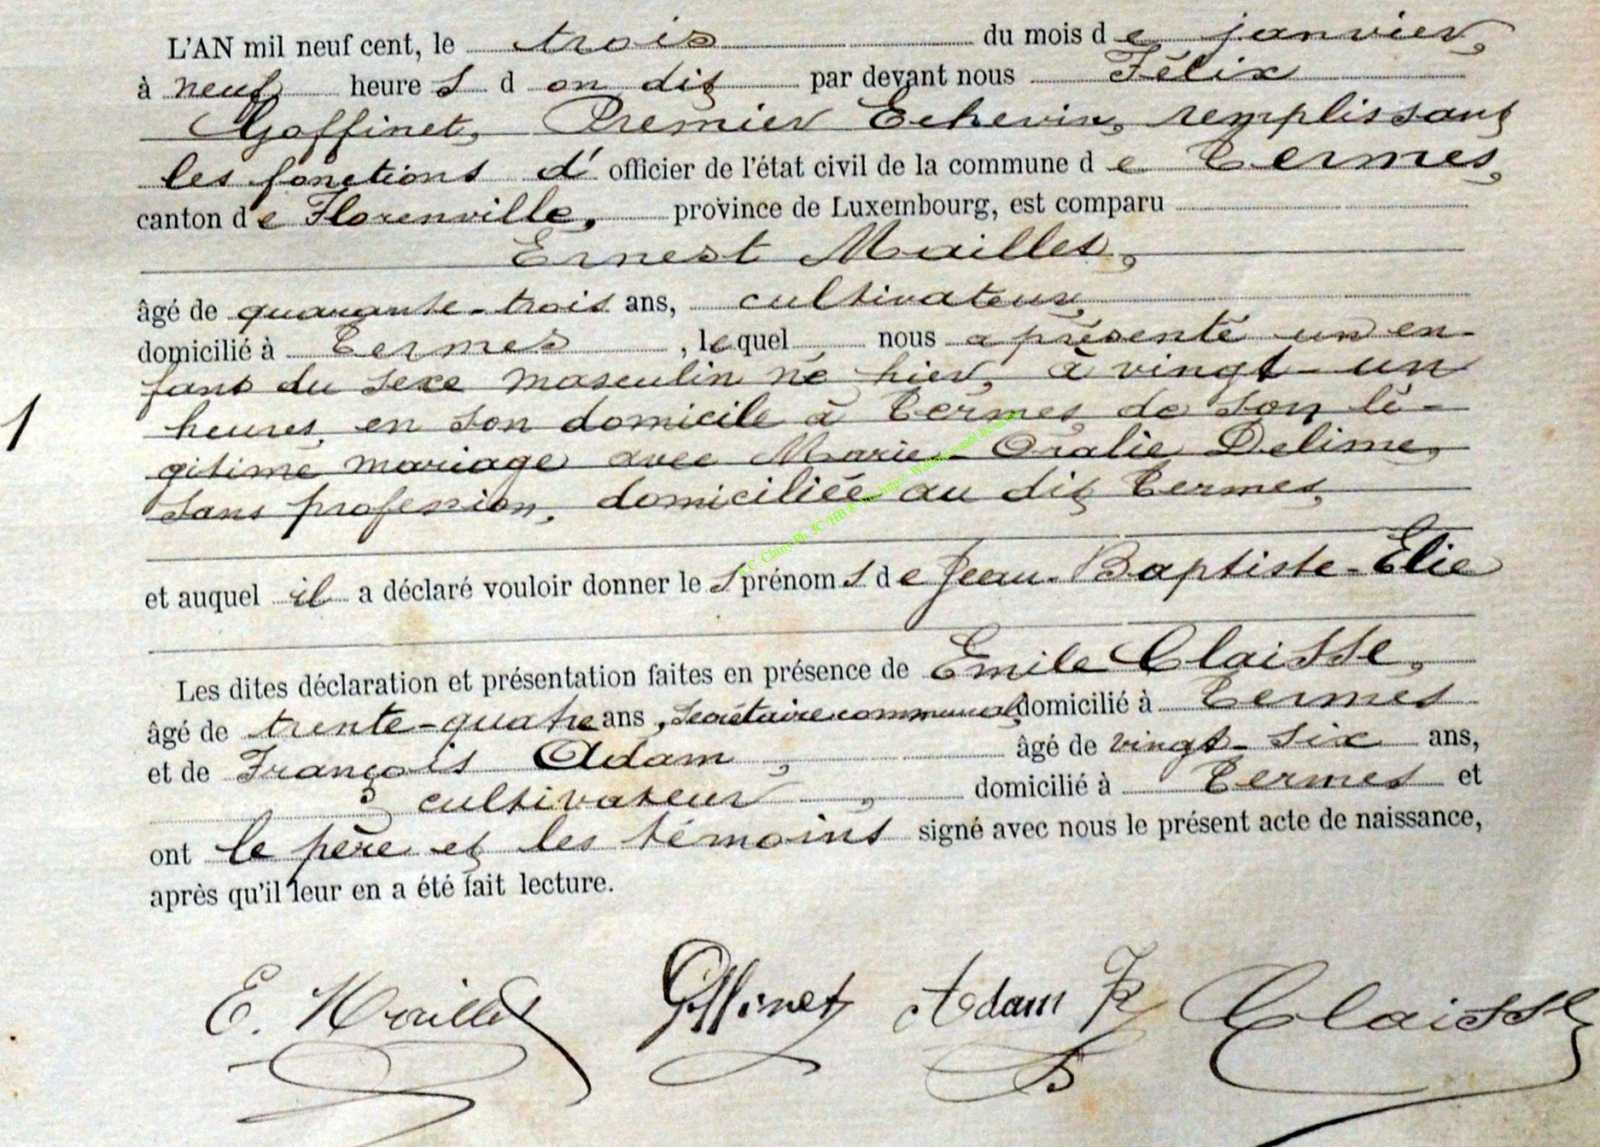 L'AN mil neuf cent, le trois du mois de janvier,
à neuf heures d on dit par devant nous Félix
Goffinet, Premier Echevin, remplissant
les fonctions d' officier de l'état civil de la commune de Termes,
canton de Florenville, province de Luxembourg, est comparu
Ernest Maillet,
âgé de quarante-trois ans, cultivateur,
domicilié à Termes, lequel nous a présenté un en-
fant du sexe masculin né hier, à vingt-un
heures, en son domicile à Termes, de son lé-
gitime mariage avec Marie-Oralie Delime,
sans profession, domiciliée au dit Termes,
et auquel il a déclaré vouloir donner les prénoms de Jean-Baptiste-Elie
Les dites déclaration et présentation faites en présence de Emile Claisse,
âgé de trente-quatre ans, secrétaire communal, domicilié à Termes
et de François Adam, âgé de vingt-six ans,
cultivateur, domicilié à Termes et
ont le père et les témoins signé avec nous le présent acte de naissance,
après qu'il leur en a été fait lecture.
1
E. Maillet Goffinet Adam Claisse